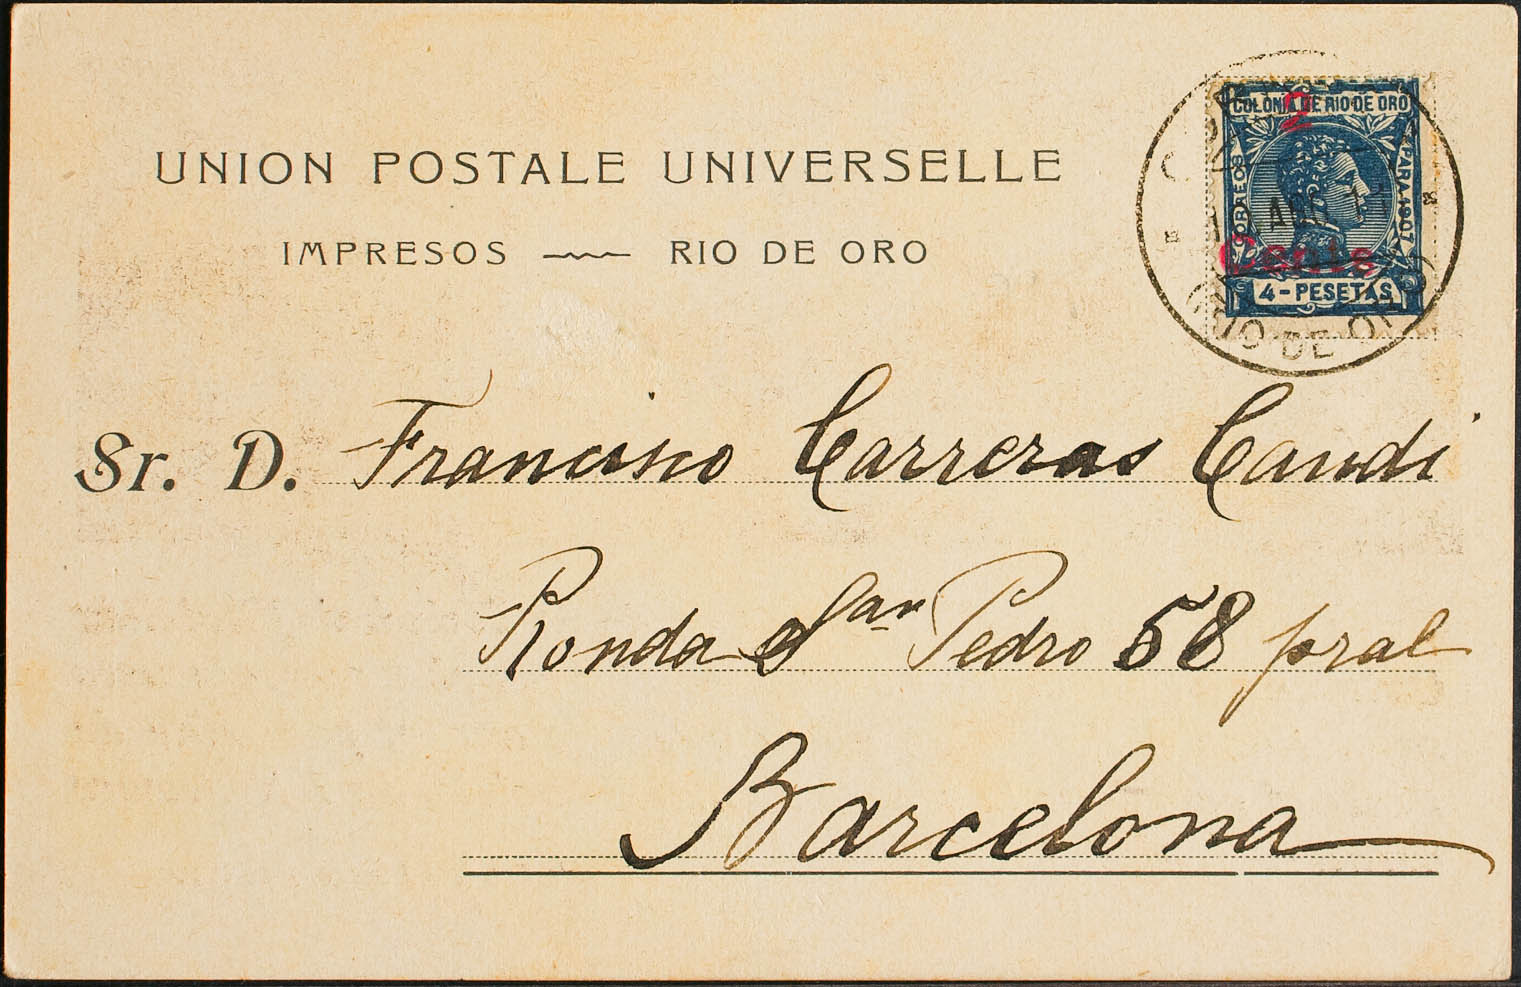 UNION POSTALE UNIVERSELLE
IMPRESOS — RIO DE ORO
COLONIA DE RIO DE ORO
CORREOS
PARA 1907
2
Cents
4-PESETAS
RIO DE ORO
Sr. D. Francisco Carreras Candi
Ronda San Pedro 58 pral
Barcelona